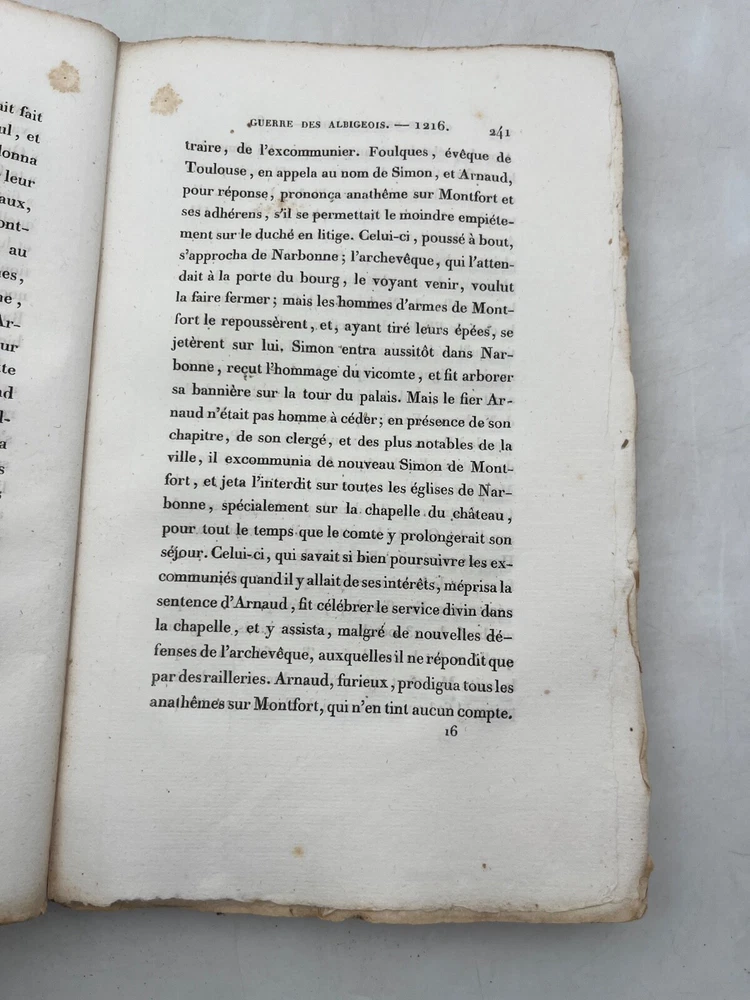 ait fait
ul, et
donna
leur
aux,
ont-
au
es,
ne,
Ar-
ur
te
nd
l-
a
s
GUERRE DES ALBIGEOIS. — 1216. 241
traire, de l'excommunier. Foulques, évêque de
Toulouse, en appela au nom de Simon, et Arnaud,
pour réponse, prononça anathême sur Montfort et
ses adhérens, s'il se permettait le moindre empiéte-
ment sur le duché en litige. Celui-ci, poussé à bout,
s'approcha de Narbonne; l'archevêque, qui l'atten-
dait à la porte du bourg, le voyant venir, voulut
la faire fermer; mais les hommes d'armes de Mont-
fort le repoussèrent, et, ayant tiré leurs épées, se
jetèrent sur lui. Simon entra aussitôt dans Nar-
bonne, reçut l'hommage du vicomte, et fit arborer
sa bannière sur la tour du palais. Mais le fier Ar-
naud n'était pas homme à céder; en présence de son
chapitre, de son clergé, et des plus notables de la
ville, il excommunia de nouveau Simon de Mont-
fort, et jeta l'interdit sur toutes les églises de Nar-
bonne, spécialement sur la chapelle du château,
pour tout le temps que le comte y prolongerait son
séjour. Celui-ci, qui savait si bien poursuivre les ex-
communiés quand il y allait de ses intérêts, méprisa la
sentence d'Arnaud, fit célébrer le service divin dans
la chapelle, et y assista, malgré de nouvelles dé-
fenses de l'archevêque, auxquelles il ne répondit que
par des railleries. Arnaud, furieux, prodigua tous les
anathêmes sur Montfort, qui n'en tint aucun compte.
16